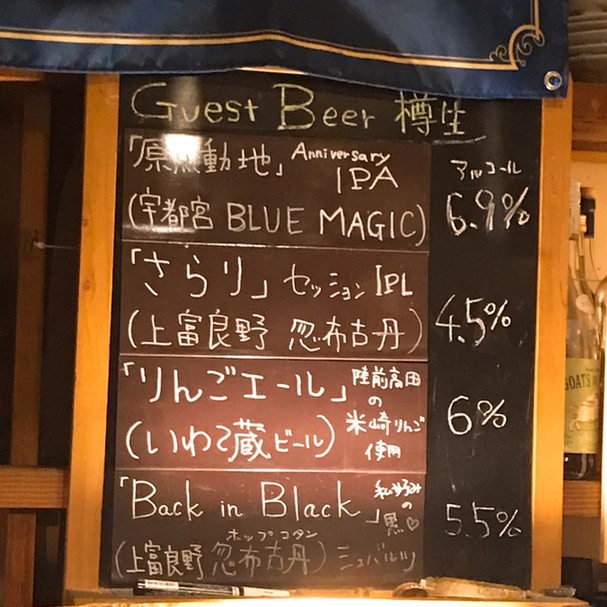 Guest Beer 樽生
「原点動地」 Anniversary IPA
アルコール 6.9%
(宇都宮 BLUE MAGIC)
「さらり」 セッション IPL
(上富良野 忽布古丹) 4.5%
「りんごエール」 陸前高田の米崎りんご使用
(いわて蔵ビール) 6%
「Back in Black」 の黒♡
5.5%
ホップコタン
(上富良野 忽布古丹) シュバルツ